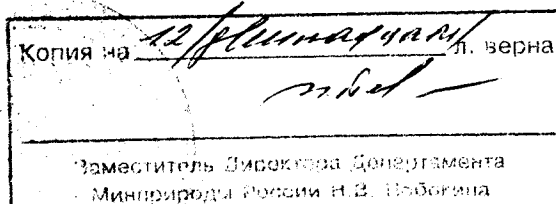 Копия на 12/двенадцати л. верна
Заместитель Директора Департамента
Минприроды России Н.В.